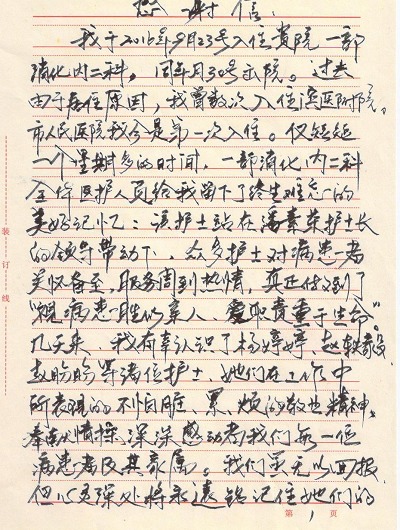 感谢信
我于2016年9月23号入住贵院一部
消化内二科，同年月30号出院。过去
由于居住原因，我曾数次入住医附院，
市人民医院我今是第一次入住。仅短短
一个星期多的时间，一部消化内二科
全体医护人员给我留下了终生难忘的
美好记忆：该护士站在潘素荣护士长
的领导带动下，众多护士对病患者
关怀备至，服务周到热情，真正做到了
“视病患胜似亲人、爱职责重于生命”。
几天来，我有幸认识了杨婷婷、赵
赵肠肠等诸位护士，她们在工作中
所表现的不怕脏、累、烦的敬业精神，
奉献情操，深深感动着我们每一位
病患者及其家属。我们虽无以回报
但心灵深处将永远铭记住她们的
装订线
第1页